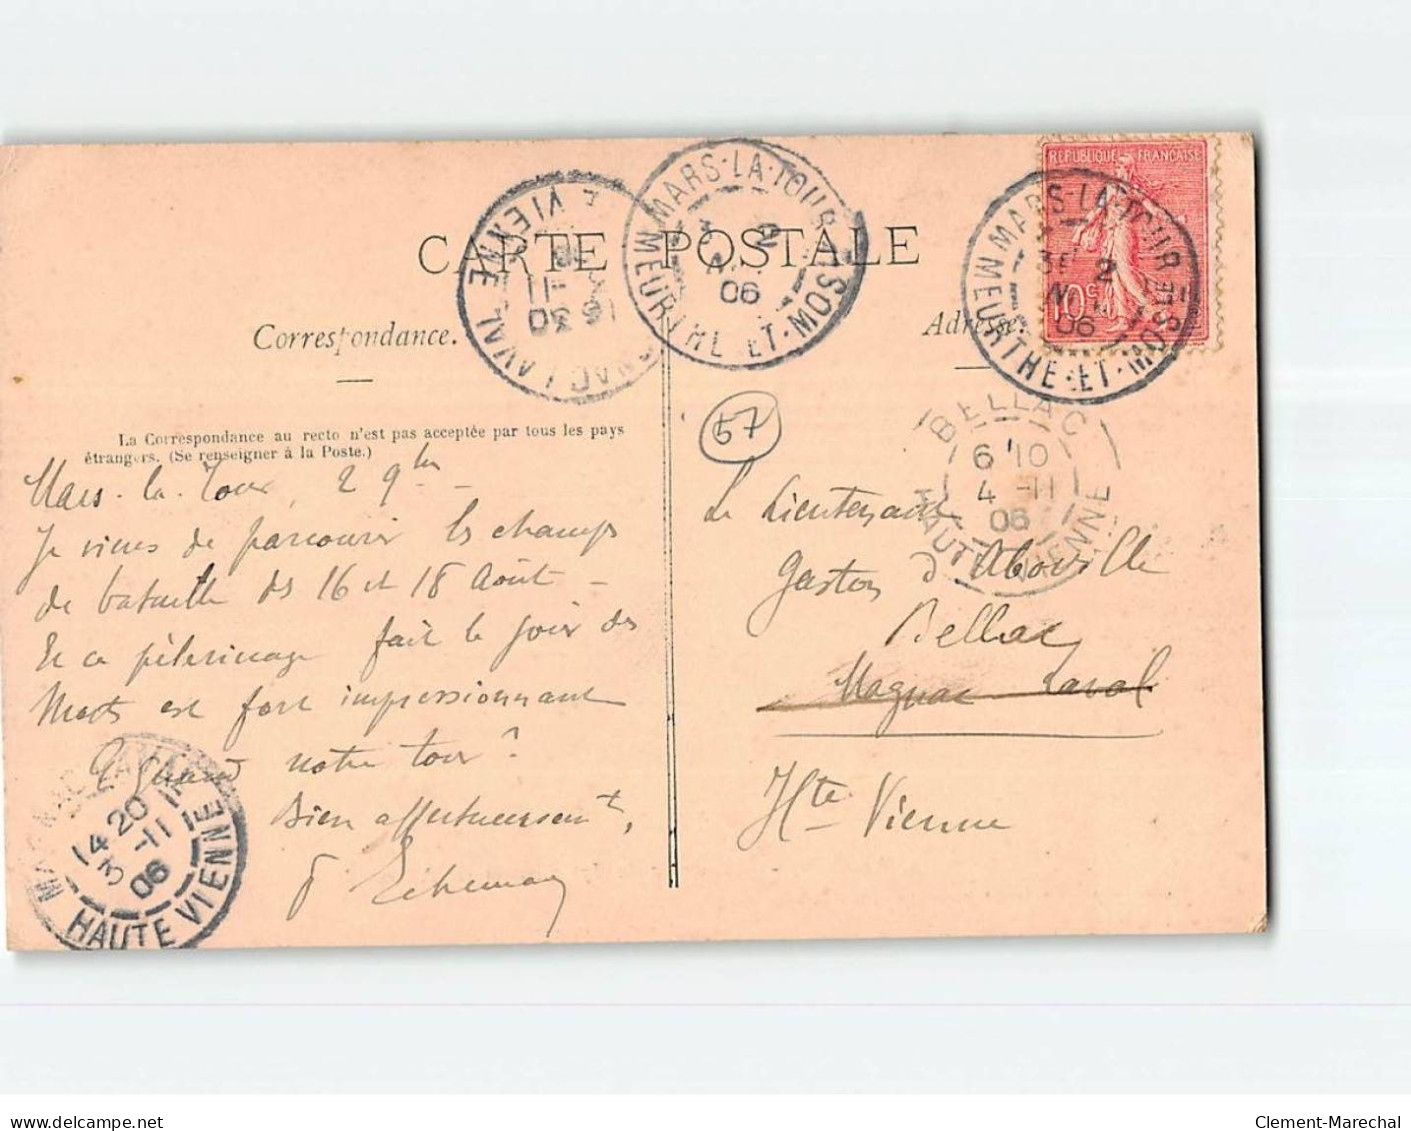 RÉPUBLIQUE FRANÇAISE
10 c
MARS-LA-TOUR
2
06
MEURTHE-ET-MOSELLE
MARS-LA-TOUR
2
06
MEURTHE-ET-MOS
E VIENNE
CARTE POSTALE
Correspondance.
Adresse.
La Correspondance au recto n'est pas acceptée par tous les pays
étrangers. (Se renseigner à la Poste.)
57
BELLAC
6 10
4 -11
06
HAUTE VIENNE
Mars-la-Tour, 2 9bre
Je viens de parcourir les champs
de bataille des 16 et 18 Août -
Et ce pèlerinage fait le jour des
Morts est fort impressionnant
Quand notre tour ?
Bien affectueusement,
Le Lieutenant
Gaston d'Aboville
Bellac
Magnac Laval
Hte Vienne
MAGNAC LAVAL
14 20
3 -11
06
HAUTE VIENNE
www.delcampe.net
Clement-Marechal